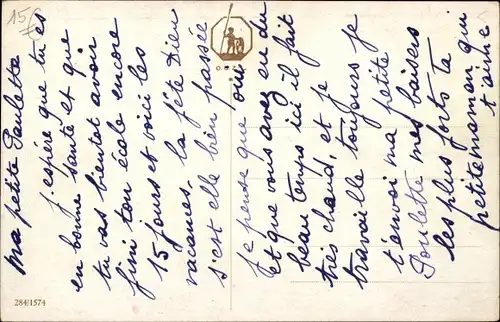 ma petite Paulette
j'espére que tu es
en bonne santé et que
tu vas bientot avoir
fini ton école encore
15 jours et voici les
vacances. la fête Dieu
s'est elle bien passée
je pense que oui
et que vous avez eu du
beau temps ici il fait
très chaud, et je
travaille toujours je
t'envoi ma petite
Poulette mes baisers
les plus forts ta
petite maman qui
t'aime
284/1574